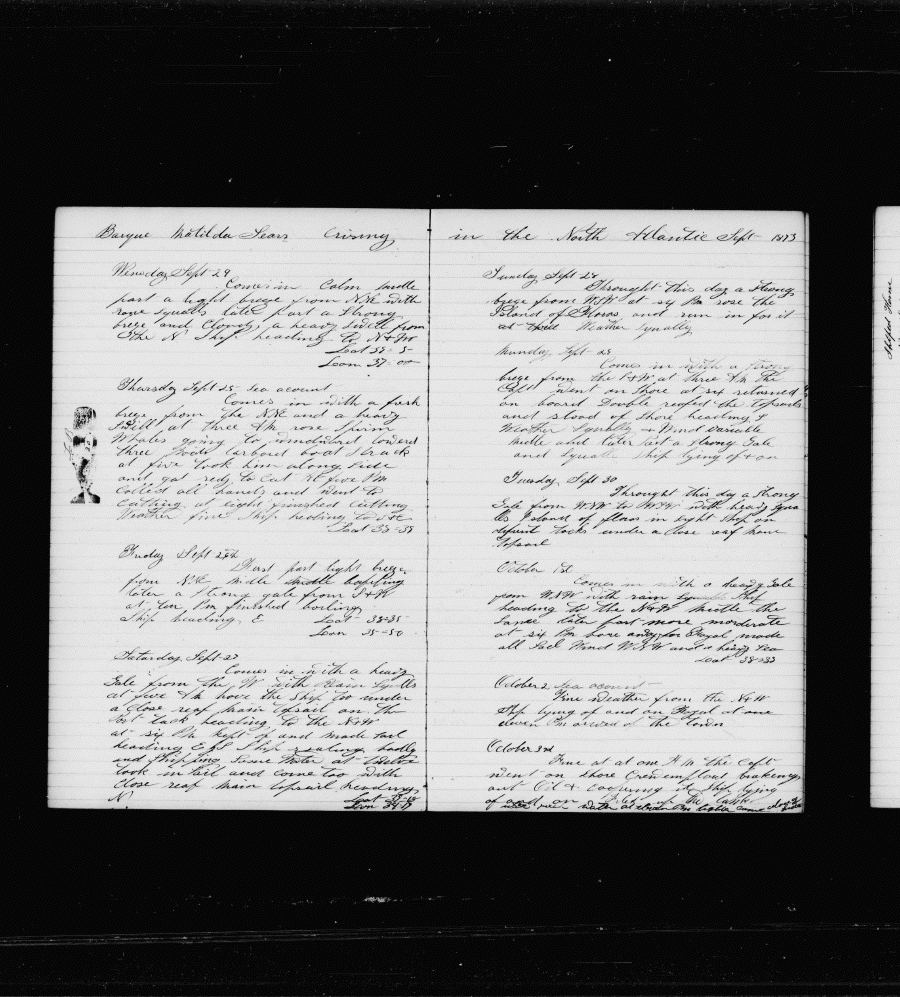 Barque Matilda Sears Crusing
Wensday Sept 24
Comes in Calm midle
part a light breze from NNE with
rane squalls later part a Strong
breze and Cloudy, a heavy swell from
the N Ship heading to N+W
Loon 37-00
Thursday Sept 25 Sea acount
Comes in with a fresh
breze from the NNE and a heavy
Swell at three AM rose Sperm
Whales going to windward lowerd
three boats larbord boat Struck
at five took him along side
and got redy to Cut At five PM
Called all hands and went to
Cutting at eight finished Cutting
Weather fine Ship heding to
Leat 38-38
Friday Sept 26th
First part light breze
from NNE midle boyling
later a Strong gale from S+W
at ten PM finished boiling
Ship heading E Leat 38-35
Loon 35-50
Saturday Sept 27
Comes in with a heavy
Gale from the W with Rain Squlls
at five AM hove the Ship too under
a Close reaf main topsail on the
Port tack heading to the N+W
at six PM kept of and made sail
heading E S Ship roaling badly
and Shipping Some Water at
took in sail and come too with
Close reaf main topsail heading
N
in the North Atlantic Sept 1873
Sunday Sept 28
Throught this day a Strong
breze from WSW at six PM rose the
Island of Flores and run in for it
at Weather Squally
Munday Sept 29
Comes in with a Strong
breze from the S+W at three AM the
Capt went on Shore at six returned
on board Double reafed the topsails
and stood of Shore heading
Weather Squally + Wind variable
midle and later part a Strong Gale
and Squalls Ship lying of + on
Tuesday Sept 30
Throught this day a Strong
Gale from WNW to WSW with heavy Squa
lls Island of flores in sight Ship on
difrent tacks under a Close reaf main
topsail
October 1st
Comes in with a heavy Gale
from WNW with rain Squalls Ship
heading to the N+W midle the
Same later part more morderate
at six PM bore away for Fayal made
all Sail Wind WNW and a heavy Sea
Leat 38-33
October 2 Sea acount
Fine Weather from the N+W
Ship lying of and on Fayal at one
eleven PM arived of the town
October 3rd
Fine at at one AM the Capt
went on Shore Crew employd braking
out Oil + Coopering it Ship lying
Shiped Home